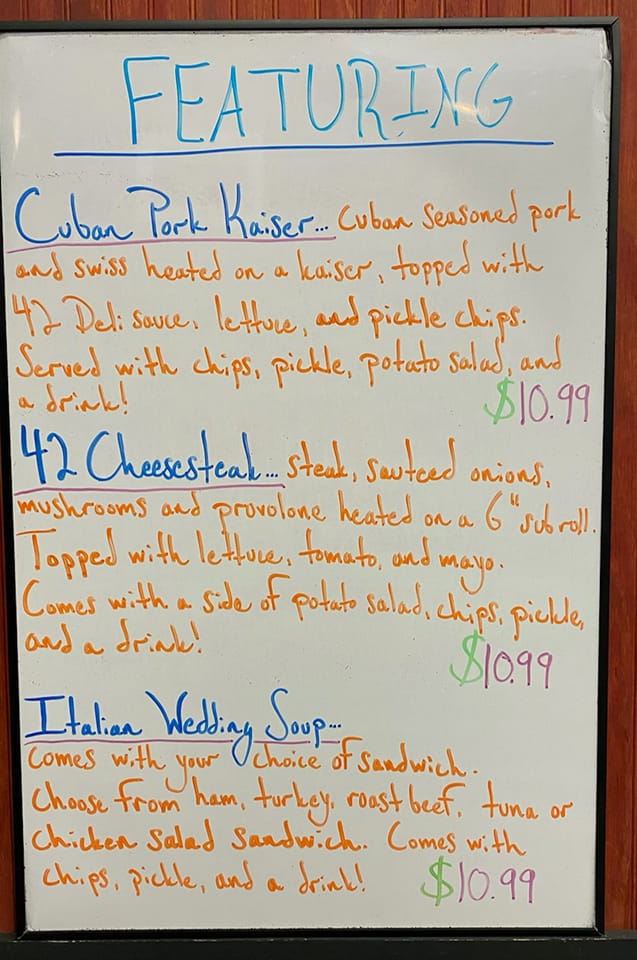 FEATURING
Cuban Pork Kaiser... Cuban seasoned pork
and swiss heated on a kaiser, topped with
42 Deli sauce, lettuce, and pickle chips.
Served with chips, pickle, potato salad, and
a drink!
$10.99
42 Cheesesteak... steak, sauteed onions,
mushrooms and provolone heated on a 6" sub roll.
Topped with lettuce, tomato, and mayo.
Comes with a side of potato salad, chips, pickle,
and a drink!
$10.99
Italian Wedding Soup...
Comes with your choice of sandwich.
Choose from ham, turkey, roast beef, tuna or
chicken salad sandwich. Comes with
chips, pickle, and a drink! $10.99